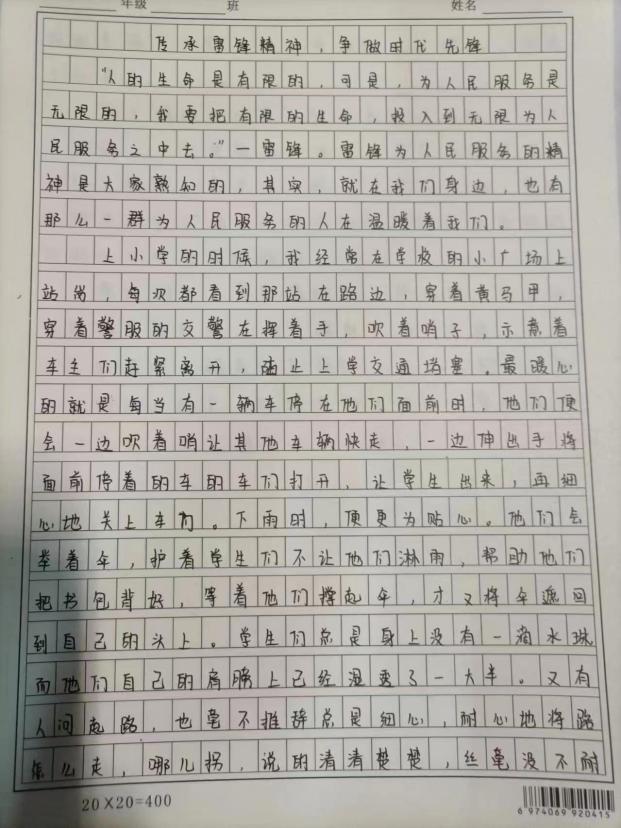 年级 班 姓名
传承雷锋精神，争做时代先锋
“人的生命是有限的，可是，为人民服务是
无限的，我要把有限的生命，投入到无限为人
民服务之中去。”一雷锋。雷锋为人民服务的精
神是大家熟知的，其实，就在我们身边，也有
那么一群为人民服务的人在温暖着我们。
上小学的时候，我经常在学校的小广场上
站岗，每次都看到那站在路边，穿着黄马甲，
穿着警服的交警在挥着手，吹着哨子，示意着
车主们赶紧离开，防止上学交通堵塞。最暖心
的就是每当有一辆车停在他们面前时，他们便
会一边吹着哨让其他车辆快走，一边伸出手将
面前停着的车的车门打开，让学生出来，再细
心地关上车门。下雨时，便更为贴心。他们会
举着伞，护着学生们不让他们淋雨，帮助他们
把书包背好，等着他们撑起伞，才又将伞遮回
到自己的头上。学生们总是身上没有一滴水珠
而他们自己的肩膀上已经湿透了一大半。又有
人问起路，也毫不推辞总是细心，耐心地将路
怎么走，哪儿拐，说的清清楚楚，丝毫没不耐
20×20=400
6 974069 920415